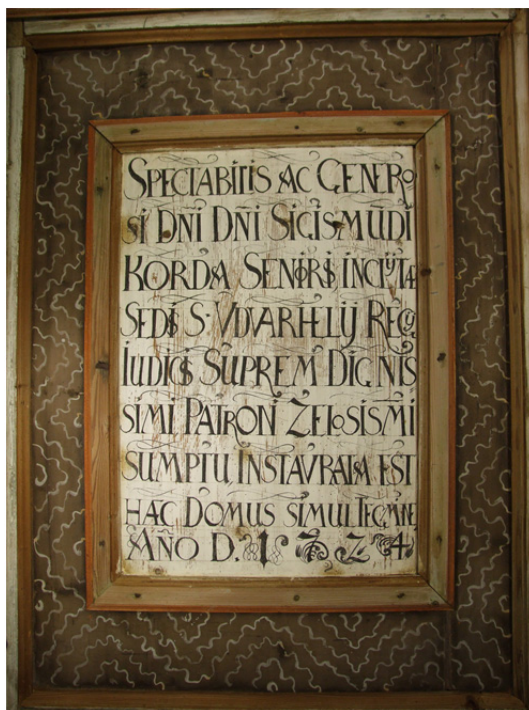 SPECTABILIS AC GENERO
SI DÑI DÑI SIGISMŪDI
KORDA SENIORIS INCLYTÆ
SEDIS S. VDVARHELIJ REG.
IUDICIS SUPREMI DIGNIS
SIMI PATRONI ZELOSISM̄I
SUMPTU, INSTAVRATA EST
HÆC DOMUS SIMUL TEGMNE
AÑO D. 1724